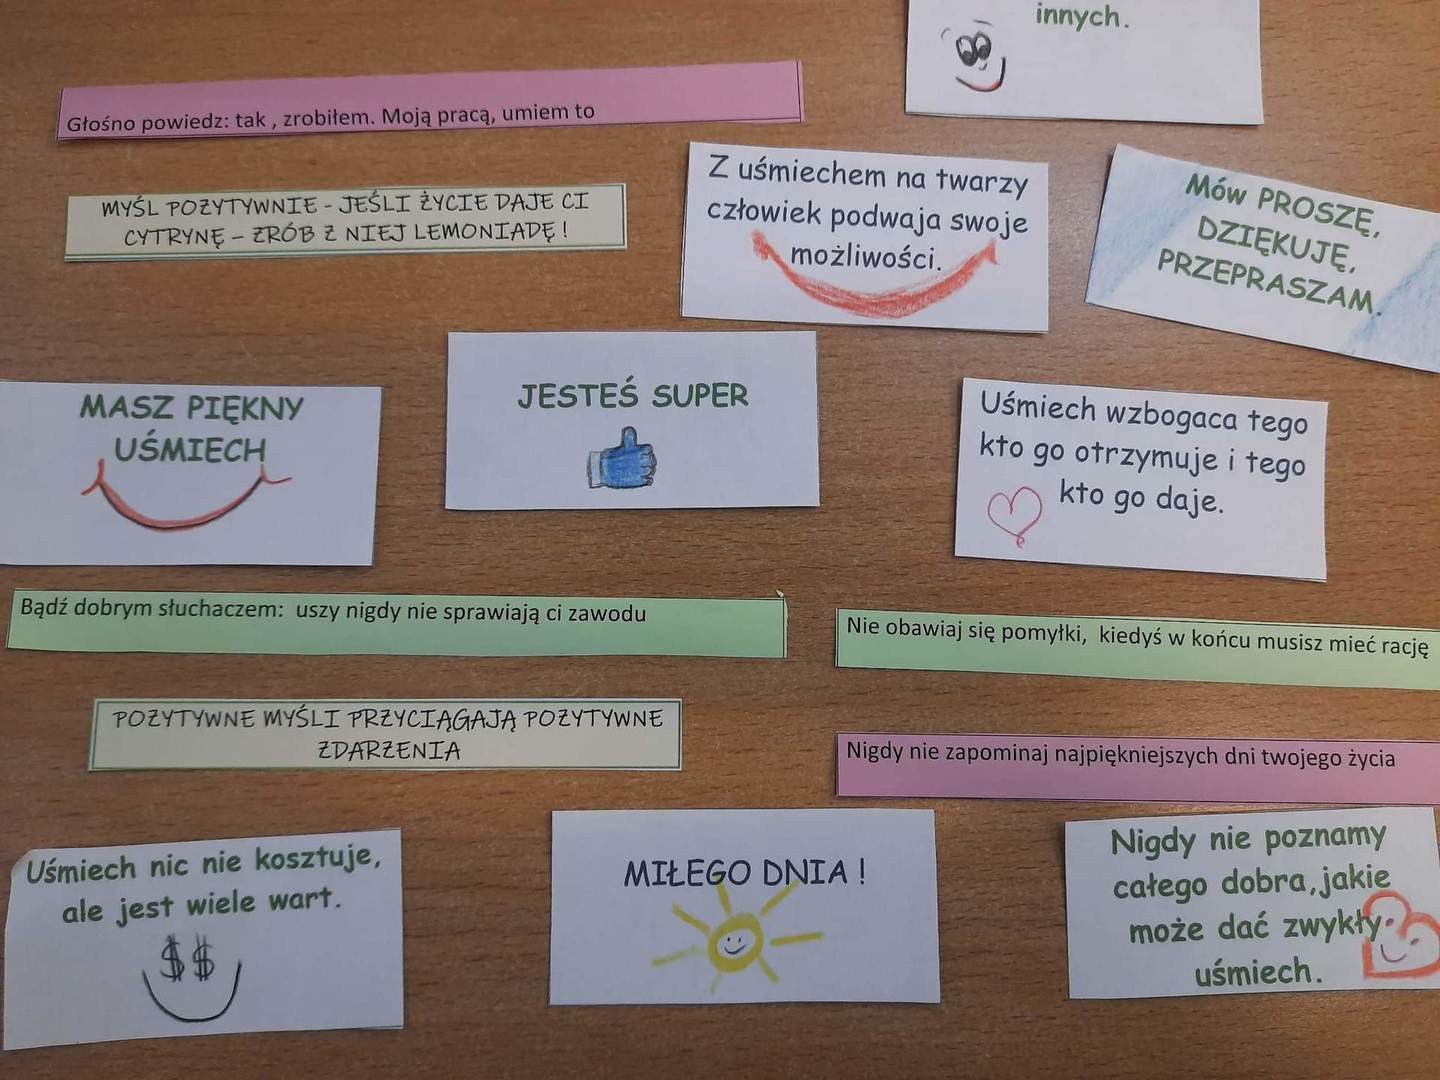 innych.
Głośno powiedz: tak , zrobiłem. Moją pracą, umiem to
MYŚL POZYTYWNIE - JEŚLI ŻYCIE DAJE CI
CYTRYNĘ – ZRÓB Z NIEJ LEMONIADĘ !
Z uśmiechem na twarzy
człowiek podwaja swoje
możliwości.
Mów PROSZĘ,
DZIĘKUJĘ,
PRZEPRASZAM.
MASZ PIĘKNY
UŚMIECH
JESTEŚ SUPER
Uśmiech wzbogaca tego
kto go otrzymuje i tego
kto go daje.
Bądź dobrym słuchaczem: uszy nigdy nie sprawiają ci zawodu
Nie obawiaj się pomyłki, kiedyś w końcu musisz mieć rację
POZYTYWNE MYŚLI PRZYCIĄGAJĄ POZYTYWNE
ZDARZENIA
Nigdy nie zapominaj najpiękniejszych dni twojego życia
Uśmiech nic nie kosztuje,
ale jest wiele wart.
$ $
MIŁEGO DNIA !
Nigdy nie poznamy
całego dobra,jakie
może dać zwykły
uśmiech.